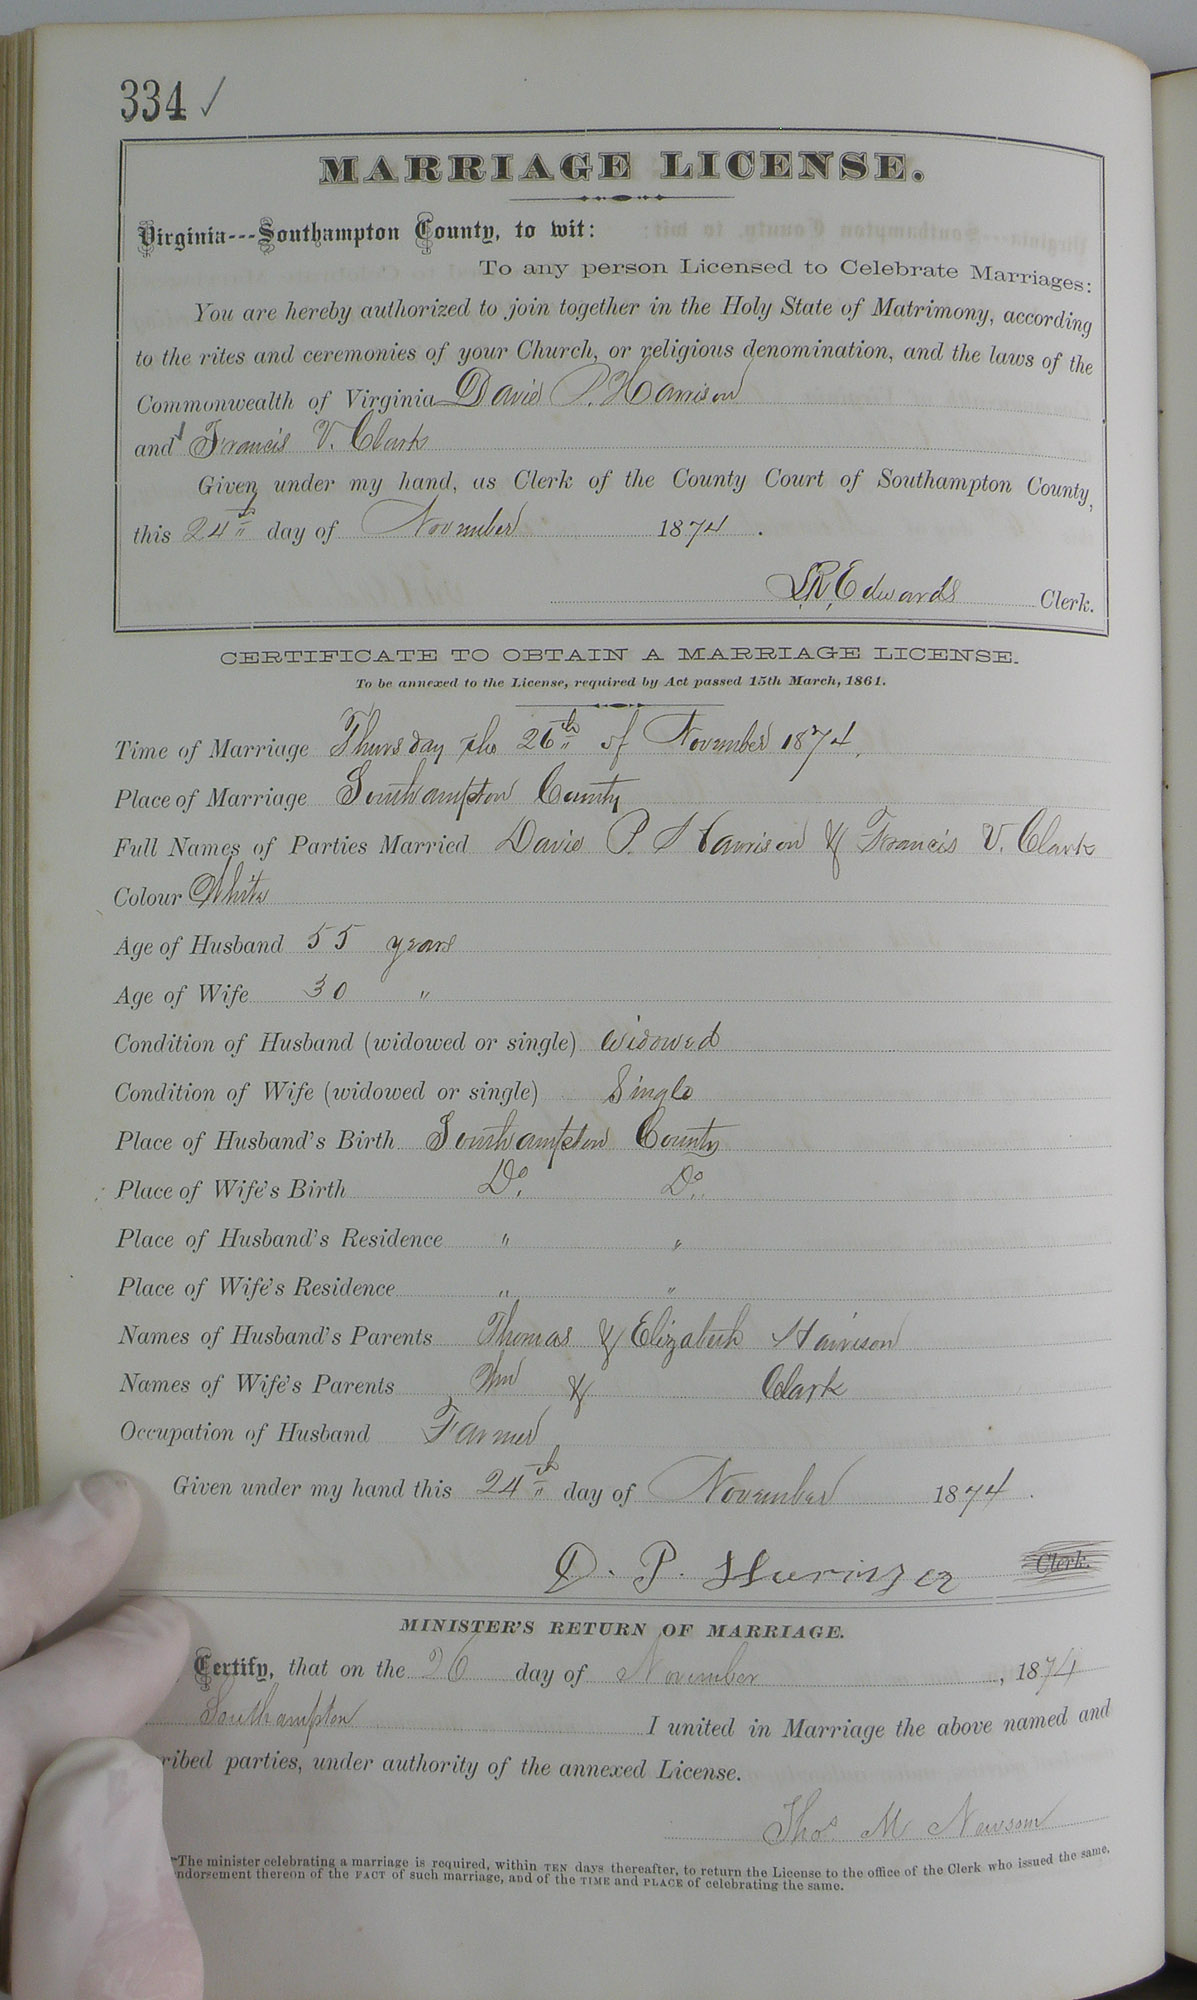 334 ✓
MARRIAGE LICENSE.
Virginia---Southampton County, to wit:
To any person Licensed to Celebrate Marriages:
You are hereby authorized to join together in the Holy State of Matrimony, according
to the rites and ceremonies of your Church, or religious denomination, and the laws of the
Commonwealth of Virginia David P. Harrison
and Francis V. Clark
Given under my hand, as Clerk of the County Court of Southampton County,
this 24th day of November 1874.
L.R. Edwards Clerk.
CERTIFICATE TO OBTAIN A MARRIAGE LICENSE.
To be annexed to the License, required by Act passed 15th March, 1861.
Time of Marriage Thursday the 26th of November 1874.
Place of Marriage Southampton County
Full Names of Parties Married David P. Harrison & Francis V. Clark
Colour White
Age of Husband 55 years
Age of Wife 30 "
Condition of Husband (widowed or single) widowed
Condition of Wife (widowed or single) Single
Place of Husband's Birth Southampton County
Place of Wife's Birth Do. Do.
Place of Husband's Residence " "
Place of Wife's Residence " "
Names of Husband's Parents Thomas & Elizabeth Harrison
Names of Wife's Parents Wm & Clark
Occupation of Husband Farmer
Given under my hand this 24th day of November 1874.
D. P. Clerk.
MINISTER'S RETURN OF MARRIAGE.
Certify, that on the 26 day of November, 1874
Southampton I united in Marriage the above named and
ribed parties, under authority of the annexed License.
Thos. M Newsom
The minister celebrating a marriage is required, within TEN days thereafter, to return the License to the office of the Clerk who issued the same,
ndorsement thereon of the FACT of such marriage, and of the TIME and PLACE of celebrating the same.